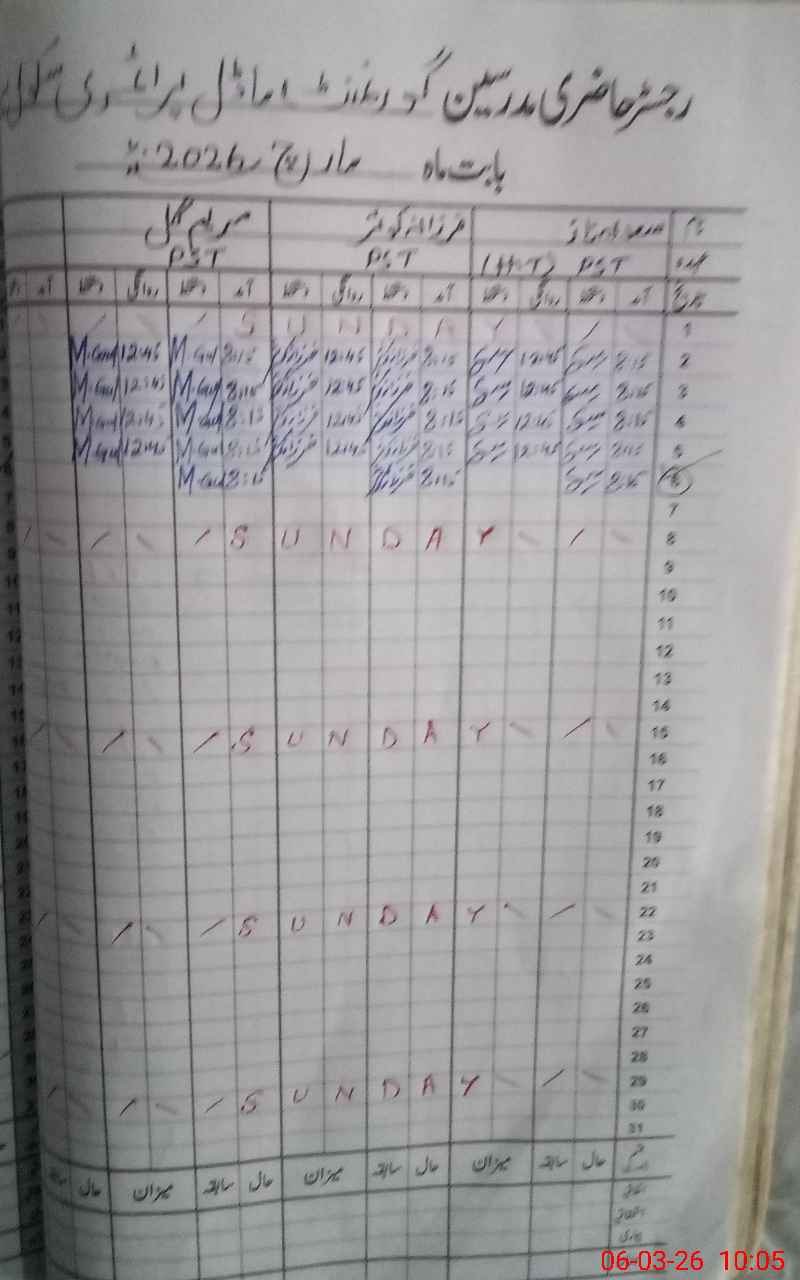 رجسٹر حاضری مدرسین گورنمنٹ ماڈل پرائمری سکول
بابت ماہ مارچ 2026ء
نام فرزانہ کوثر مریم گل
عہدہ PST (H.T) PST PST
تاریخ آمد دستخط روانگی دستخط آمد دستخط روانگی دستخط آمد دستخط روانگی دستخط آمد
1 S U N D A Y
2 8:15 12:45 8:15 فرزانہ 12:45 فرزانہ 8:15 M.Gul 12:45 M.Gul
3 8:15 12:45 8:15 فرزانہ 12:45 فرزانہ 8:15 M.Gul 12:45 M.Gul
4 8:15 12:45 8:15 فرزانہ 12:45 فرزانہ 8:15 M.Gul 12:45 M.Gul
5 8:15 12:45 8:15 فرزانہ 12:45 فرزانہ 8:15 M.Gul 12:45 M.Gul
6 8:15 8:15 فرزانہ 8:15 M.Gul
7
8 S U N D A Y
9
10
11
12
13
14
15 S U N D A Y
16
17
18
19
20
21
22 S U N D A Y
23
24
25
26
27
28
29 S U N D A Y
30
31
حال سابقہ میزان حال سابقہ میزان حال سابقہ میزان حال سابقہ
06-03-26 10:05